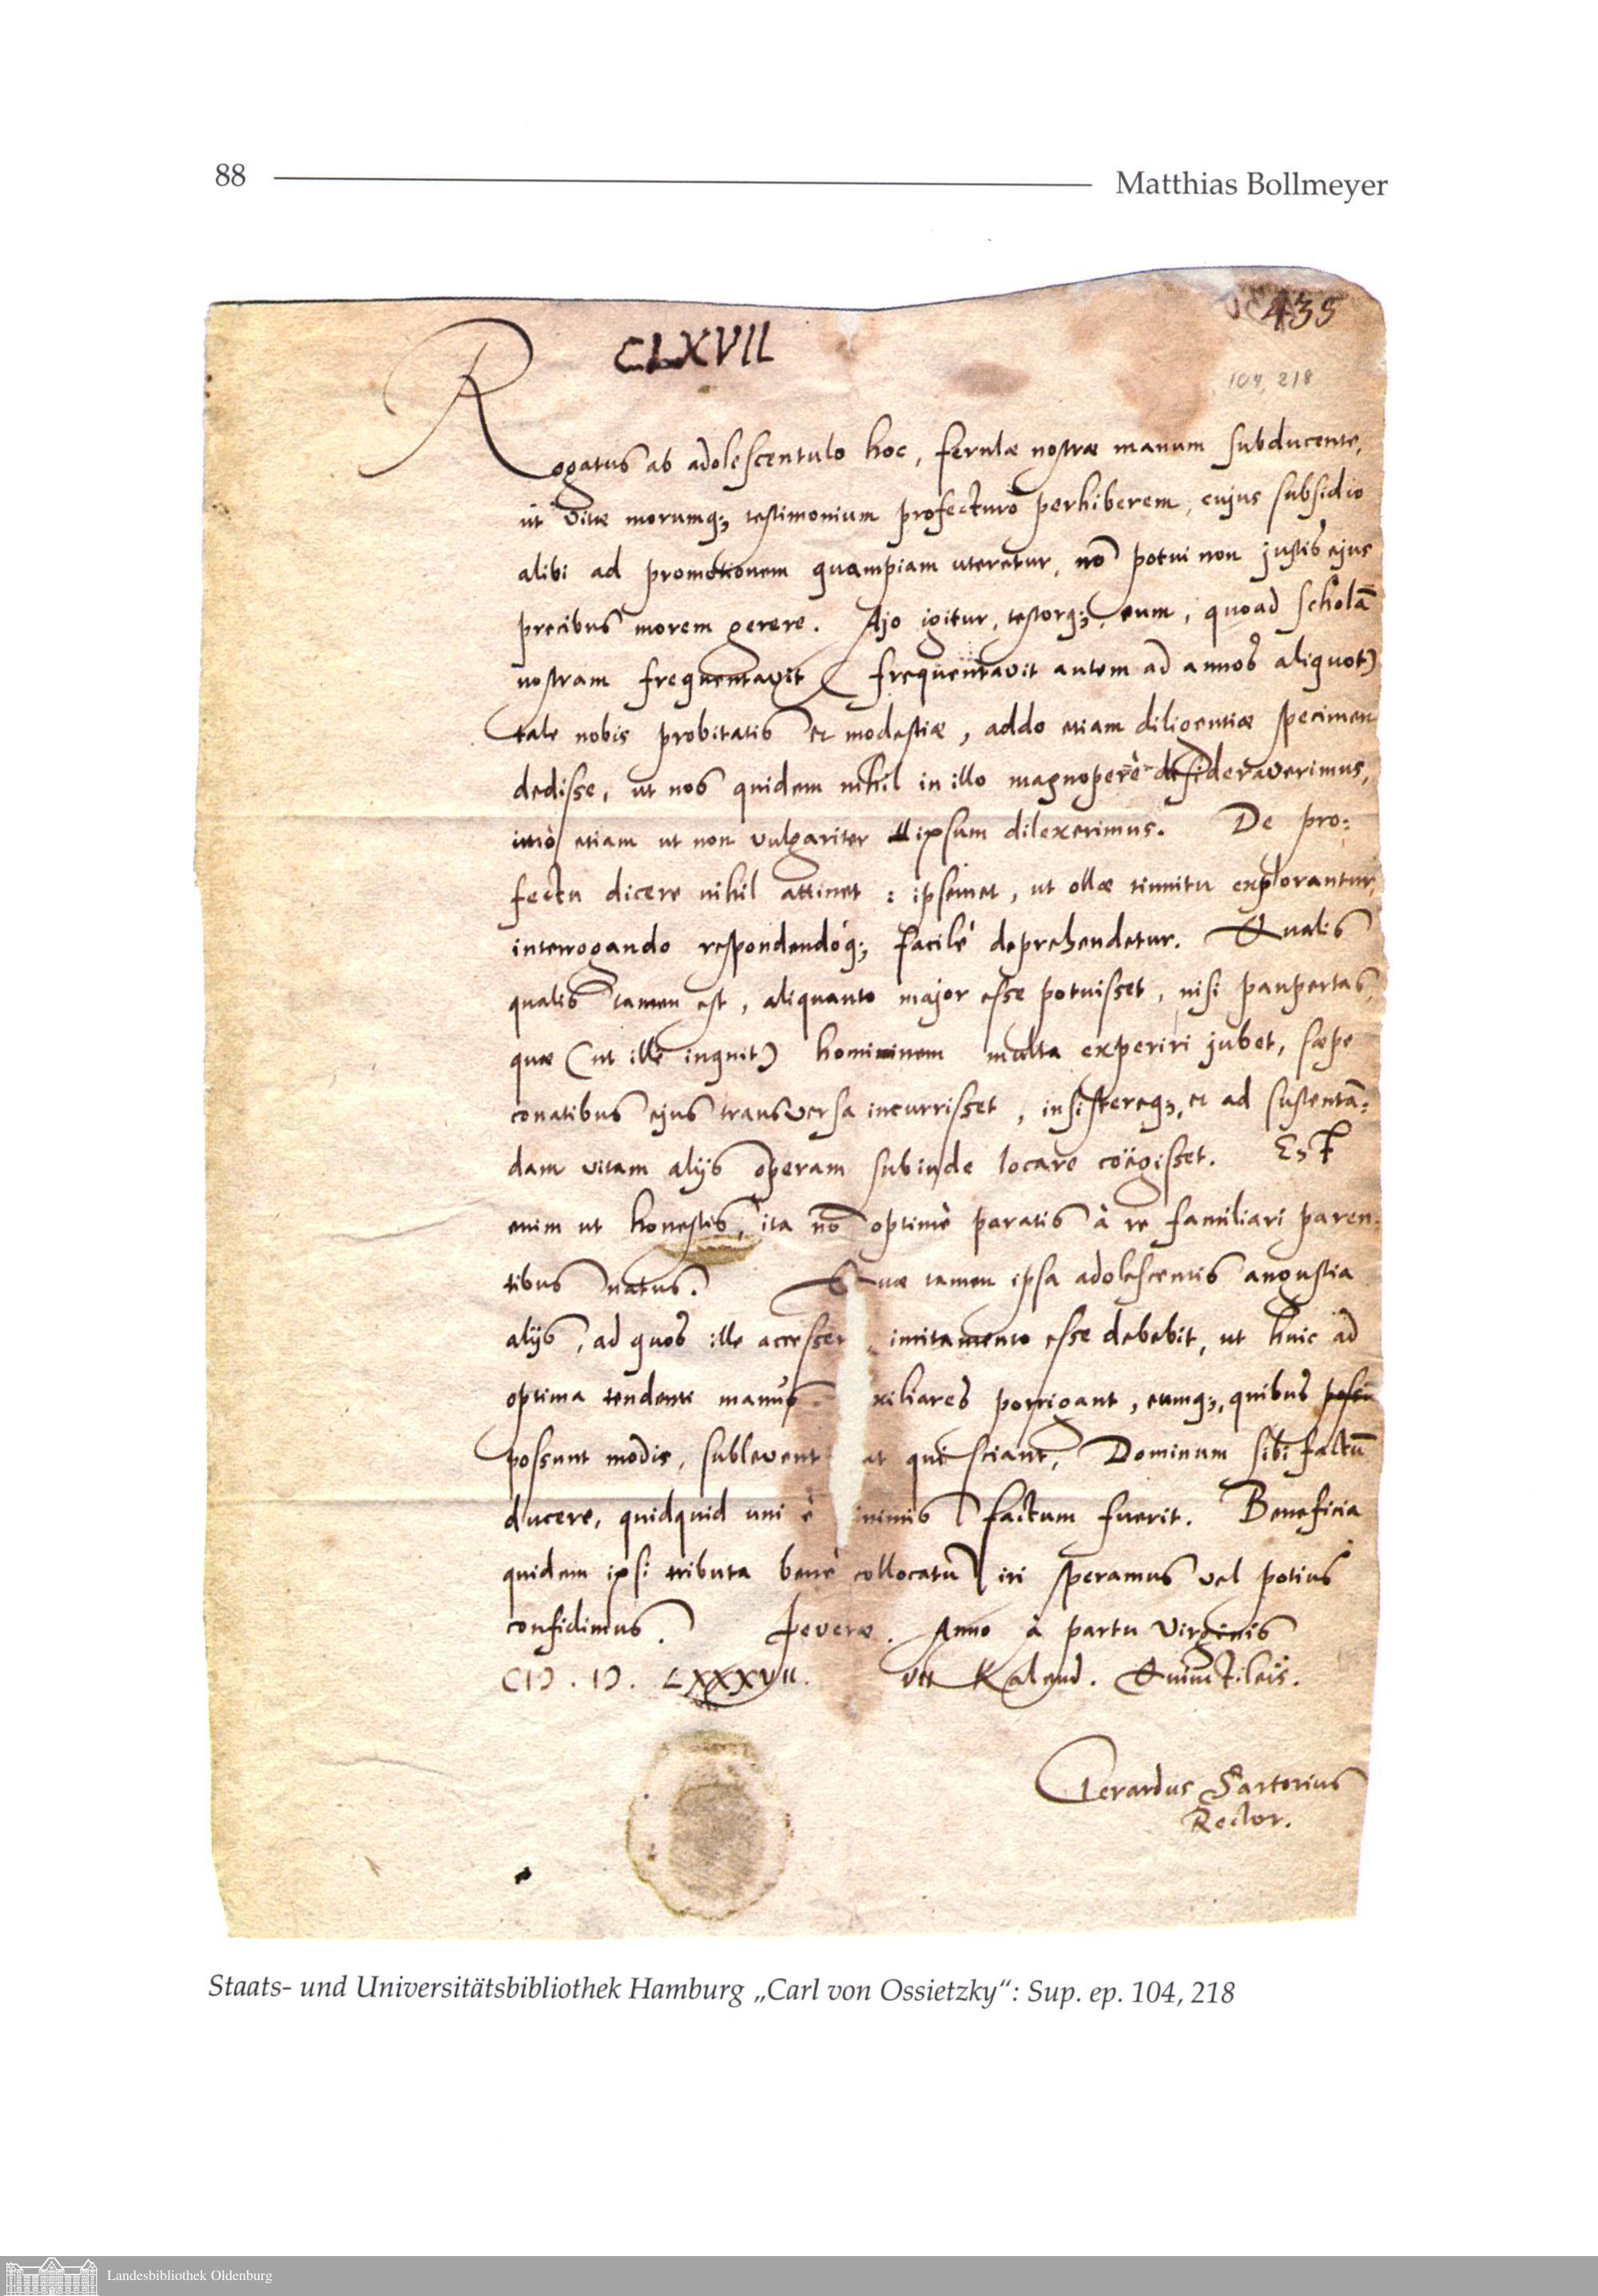 88
Matthias Bollmeyer
CLXVII
435
104, 218
Rogatus ab adolescentulo hoc, ferulæ nostræ manum subducente,
ut vitæ morumq;, testimonium profecturo perhiberem, cujus subsidio
alibi ad promotionem quampiam uteretur, nō potui non justis ejus
precibus morem gerere. Ajo igitur, testorq;, eum, quoad scholā
nostram frequentavit (frequentavit autem ad annos aliquot)
tale nobis probitatis et modestiæ, addo etiam diligentiæ specimen
dedisse, ut nos quidem nihil in illo magnoperè desideraverimus,
imò etiam ut non vulgariter ipsum dilexerimus. De pro:
fectu dicere nihil attinet : ipsemet, ut ollæ tinnitu explorantur,
interrogando respondendóq; facilè deprehendetur. Qualis
qualis tamen est, aliquanto major esse potuisset, nisi paupertas,
quæ (ut ille inquit) hominem multa experiri jubet, sæpe
conatibus ejus transversa incurrisset, insistereq;, et ad sustentā:
dam vitam alijs operam subinde locare coëgisset. Est
enim ut honestis, ita nō optimè paratis à re familiari paren:
tibus natus. Quæ tamen ipsa adolescentis angustia
alijs, ad quos ille accesser incitamento esse debebit, ut huic ad
optima tendenti manus xiliares porrigant, eumq;, quibus
possunt modis, sublevent at qui sciant, Dominum sibi factū
ducere, quidquid uni è inimis factum fuerit. Beneficia
quidem ipsi tributa benè collocatū iri speramus vel potius
confidimus. Jeveræ. Anno à partu Virginis
CIƆ. IƆ. LXXXVII. VII Kalend. Quinctileis.
Gerardus Sartorius
Rector.
Staats- und Universitätsbibliothek Hamburg „Carl von Ossietzky“: Sup. ep. 104, 218
Landesbibliothek Oldenburg